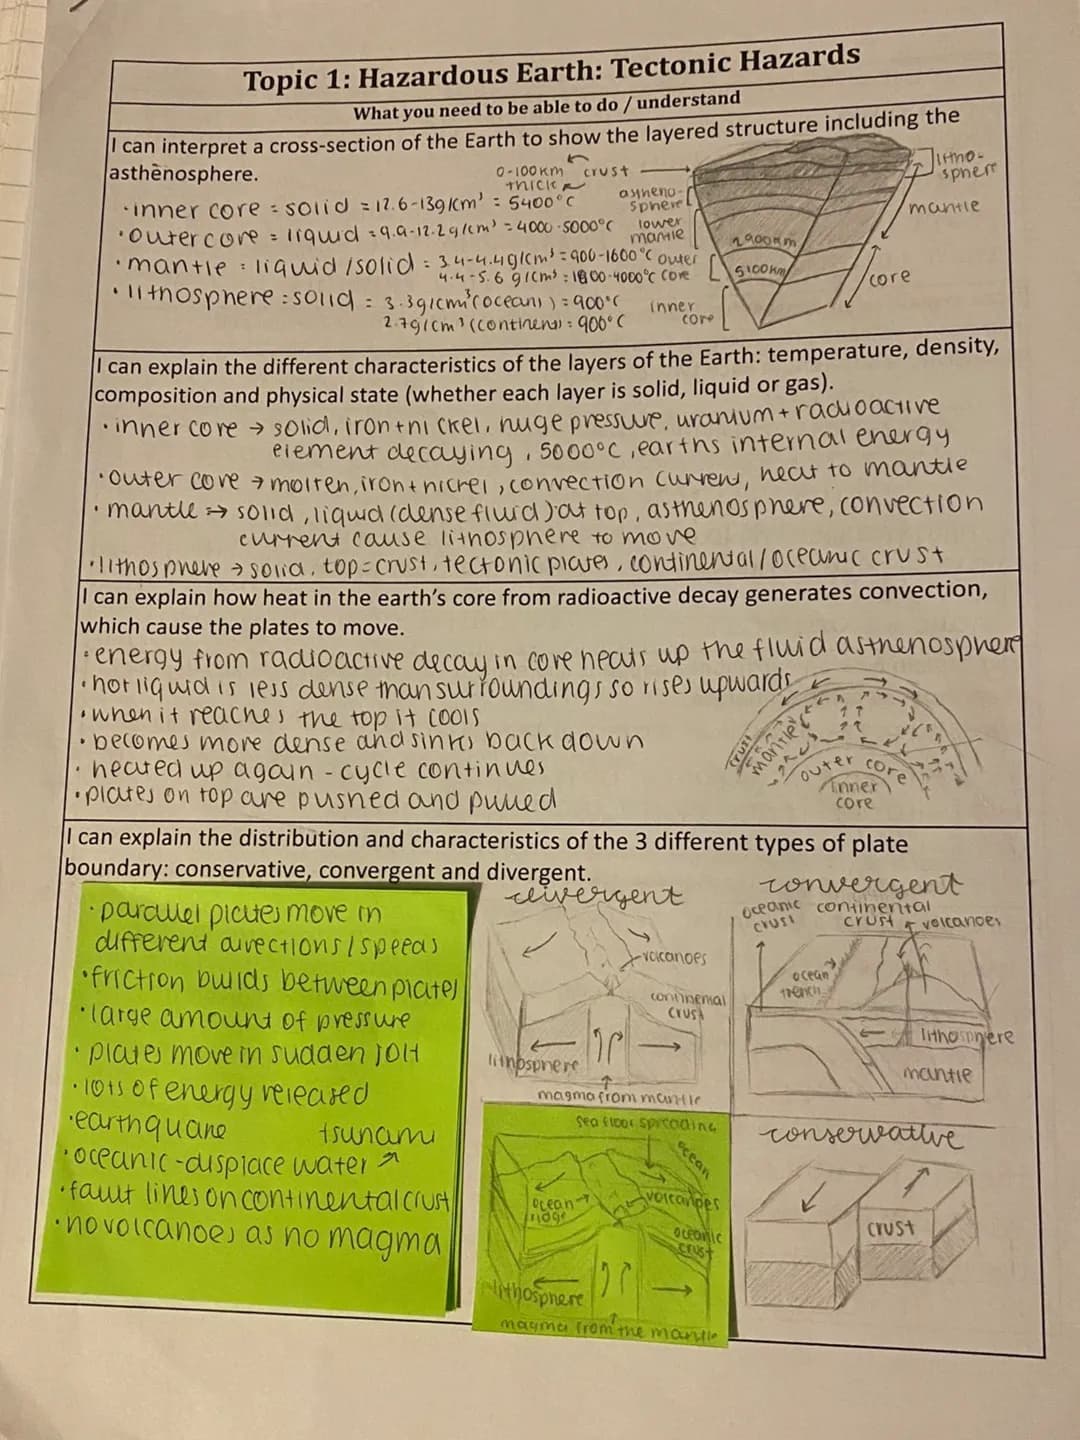 Topic 1: Hazardous Earth: Tectonic Hazards
What you need to be able to do / understand
I can interpret a cross-section of the Earth to show the layered structure including the
asthenosphere.
0-100km thick
crust
litho-
sphere
astheno-
sphere
mantle
lower
mantle
2900km
outer
core
5100km
core
inner
core
• inner core = solid = 12.6-13g/cm³ = 5400°C
• outer core = liquid = 9.9-12.2g/cm³ = 4000-5000°C
• mantle = liquid/solid = 3.4-4.4g/cm³ = 900-1600°C
4.4-5.6 g/cm³ = 1800-4000°C
• lithosphere = solid = 3.3g/cm³ (oceans) = 900°C
2.7g/cm³ (continens) = 900°C
I can explain the different characteristics of the layers of the Earth: temperature, density,
composition and physical state (whether each layer is solid, liquid or gas).
• inner core → solid, iron + nickel, huge pressure, uranium + radioactive
element decaying, 5000°C, earths internal energy
• outer core → molten, iron + nickel, convection current, heat to mantle
• mantle → solid, liquid (dense fluid) at top, asthenosphere, convection
current cause lithosphere to move
• lithosphere → solid, top = crust, tectonic plates, continental/oceanic crust
I can explain how heat in the earth's core from radioactive decay generates convection,
which cause the plates to move.
• energy from radioactive decay in core heats up the fluid asthenosphere
• hot liquid is less dense than surroundings so rises upwards
• when it reaches the top it cools
• becomes more dense and sinks back down
• heated up again - cycle continues
• plates on top are pushed and pulled
crust
mantle
outer core
inner
core
I can explain the distribution and characteristics of the 3 different types of plate
boundary: conservative, convergent and divergent.
• parallel plates move in
different directions/speeds
• friction builds between plates
• large amount of pressure
• plates move in sudden jolt
• lots of energy released
• earthquake tsunami
• oceanic - displace water ↗
• fault lines on continental crust
• no volcanoes as no magma
divergent
volcanoes
continental
crust
lithosphere
magma from mantle
sea floor spreading
ocean
ocean
ridge
volcanoes
oceanic
crust
lithosphere
magma from the mantle
convergent
oceanic
crust
continental
crust
volcanoes
ocean
trench
lithosphere
mantle
conservative
crust